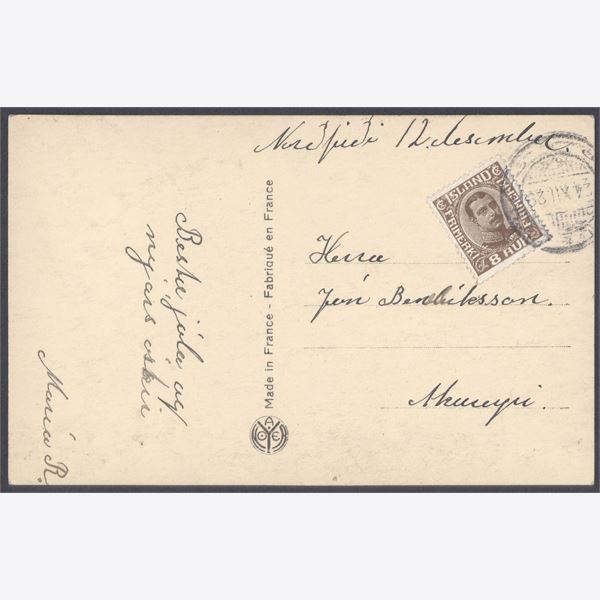 Norðfirði 12. desember.
Bestu jóla og
nýárs óskir
María R.
Made in France - Fabriqué en France
Herra
Jón Benediksson.
Akureyri.
ÍSLAND
FRÍMERKI
8 AUR.
24.XII.29